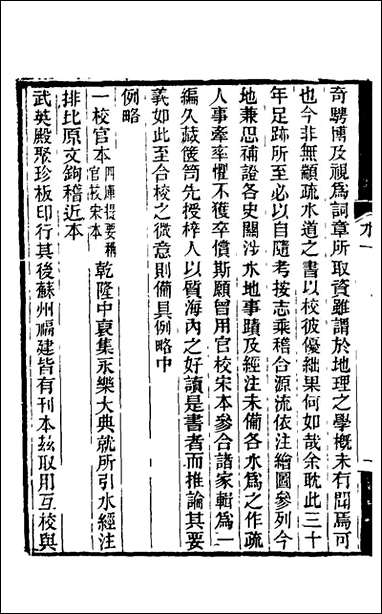 奇騁博及視爲詞章所取資雖謂於地理之學槪未有聞焉可
也今非無顓疏水道之書以校彼優絀果何如哉余耽此三十
年足跡所至必以自隨考按志乘稽合源流依注繪圖參列今
地兼思補證各史關涉水地事蹟及經注未備各水爲之作疏
人事牽率懼不獲卒償斯願曾用官校宋本參合諸家輯爲一
編久藏篋笥先授梓人以質海內之好讀是書者而推論其要
義如此至合校之微意則備具例略中
例略
一校官本四庫提要稱官校宋本乾隆中裒集永樂大典就所引水經注
排比原文鉤稽近本
武英殿聚珍板印行其後蘇州福建皆有刊本茲取用互校與
水一